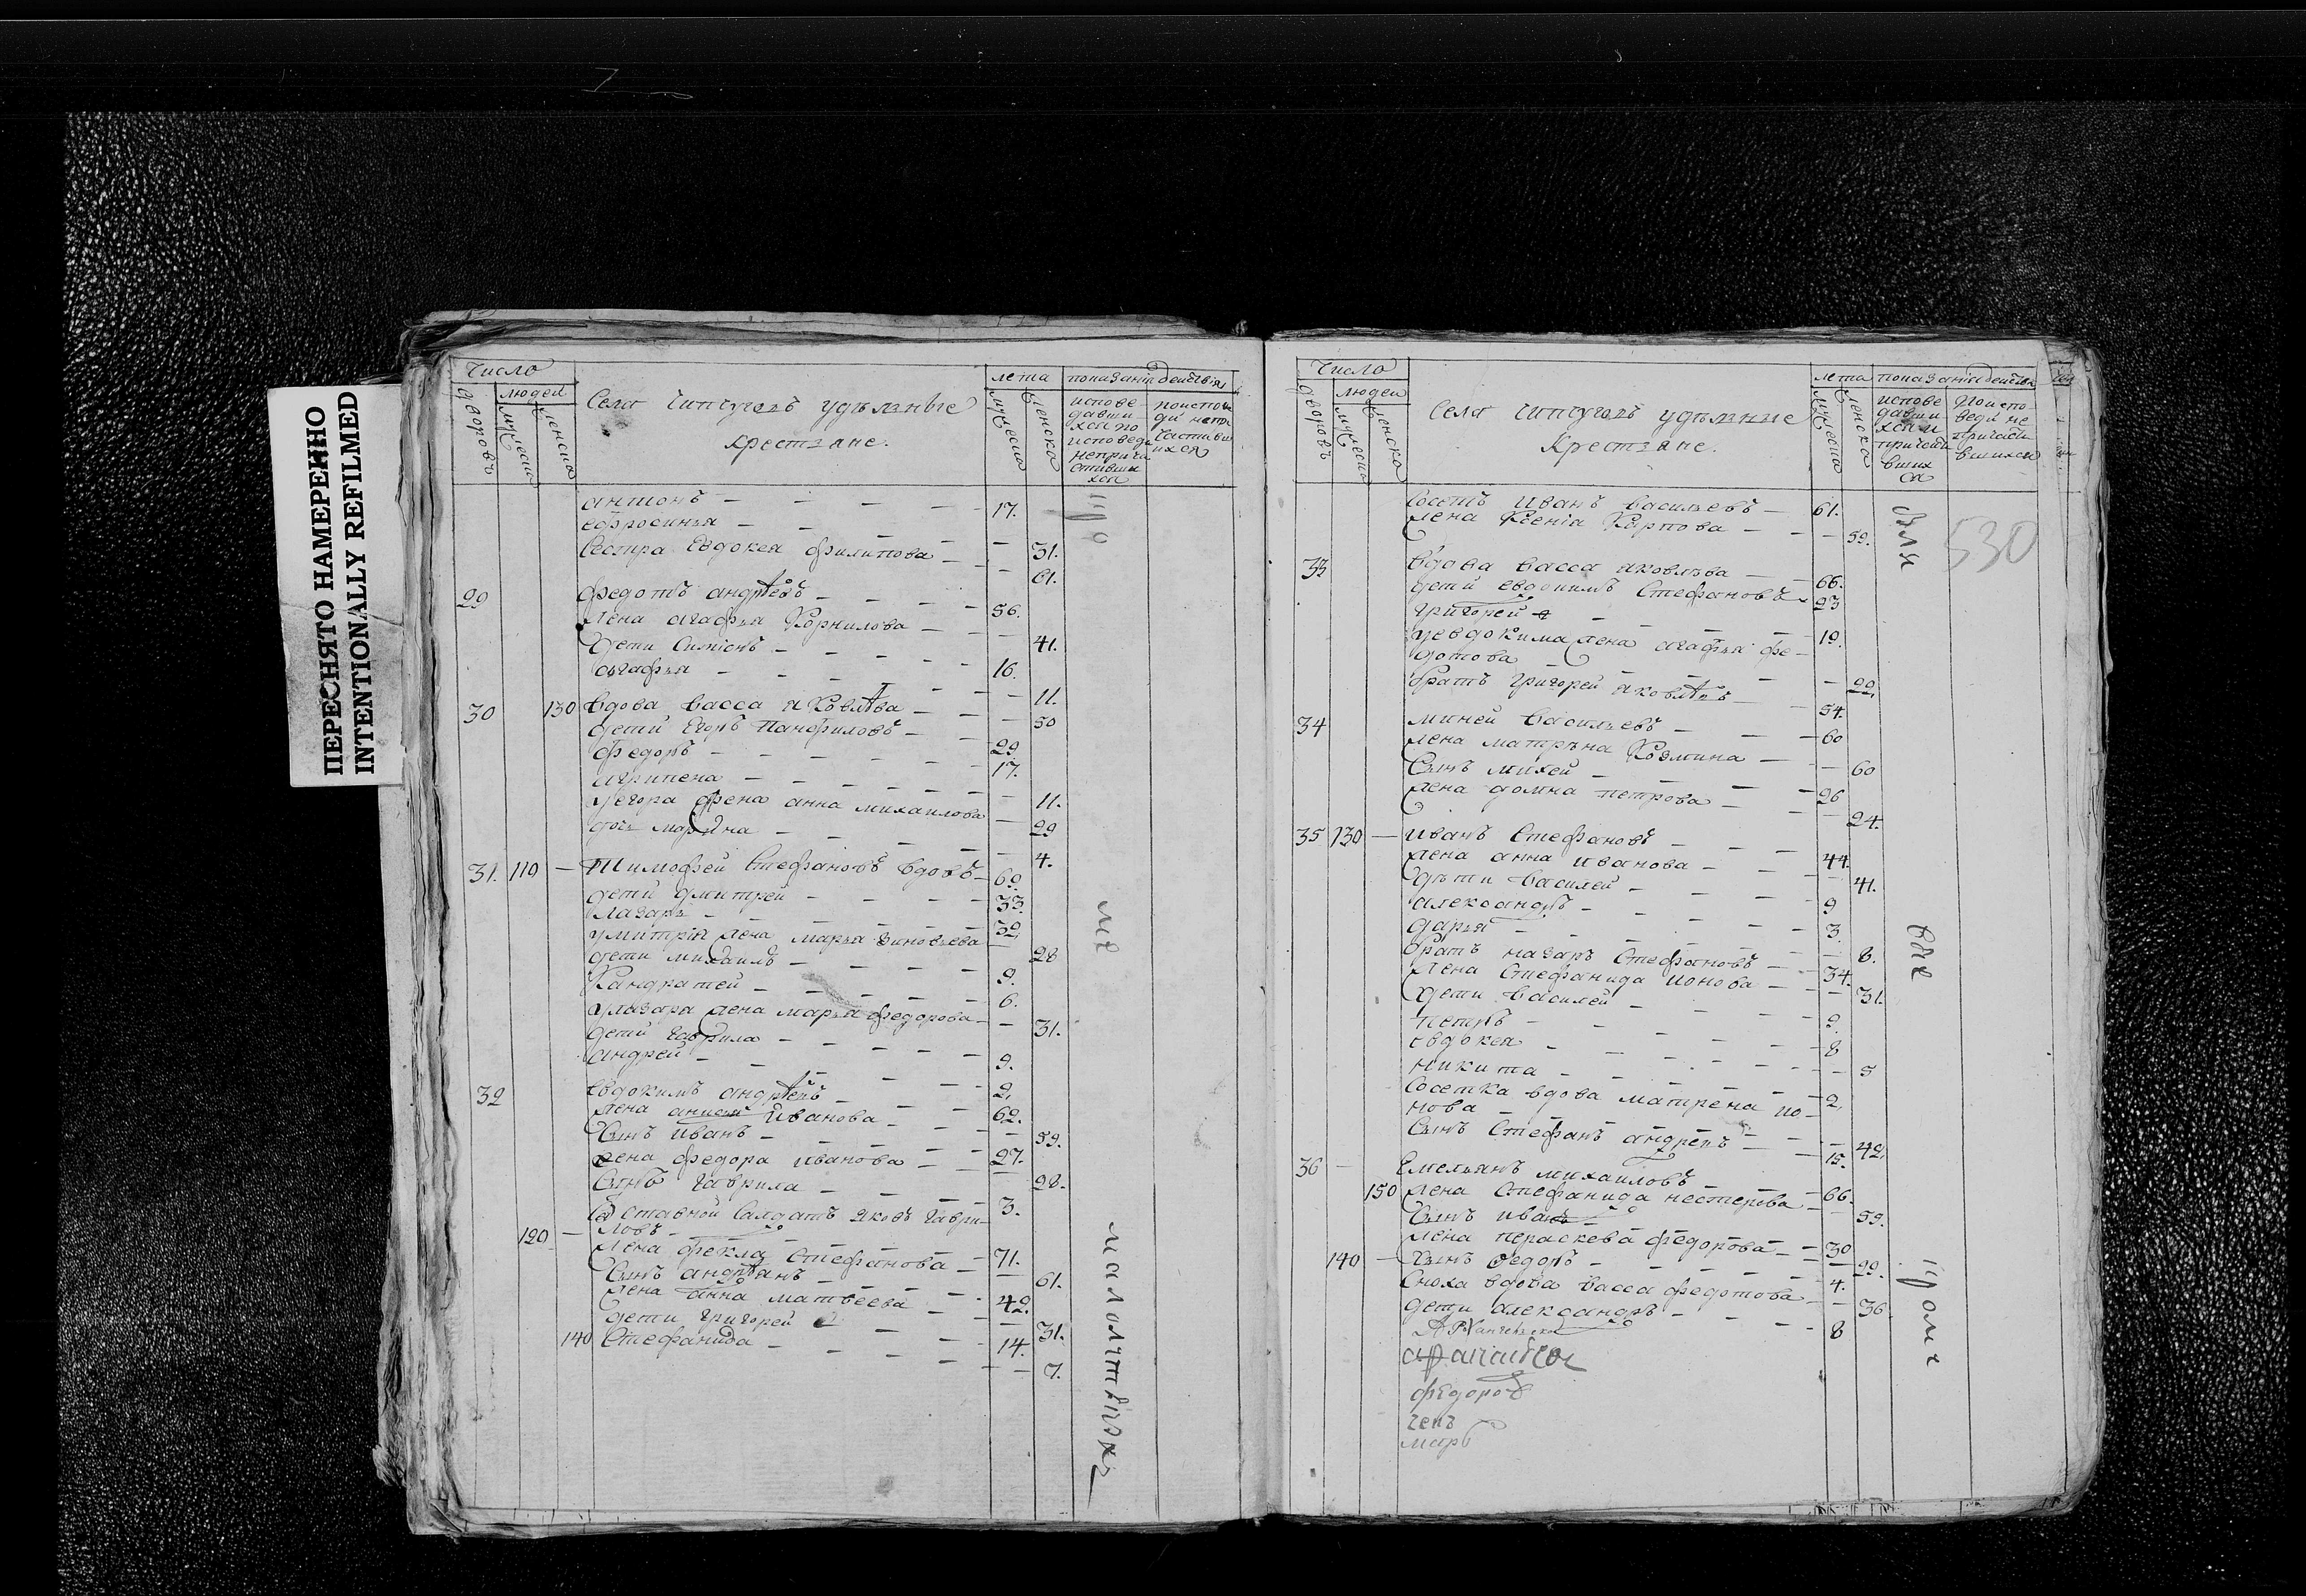 ПЕРЕСНЯТО НАМЕРЕННО
INTENTIONALLY REFILMED
Число
дворовъ
людей
мужеска
женска
Села Чипчуговъ удѣльные
крестьяне.
лета
мужеска
женска
показаніи действія
испове
давши
хся по
исповеди
неприча
стивши
хся
ся
антонъ 17.
ефросинья 31.
Сестра Евдокея Филипова 61.
29 Федотъ андрѣевъ 56.
жена агафья Корнилова 41.
дети Симіонъ 16.
агафья 11.
30 130 вдова васса Яковлѣва 50
дети Егоръ Панфиловъ 29
Федоръ 17.
агрипена 11.
у Егора жена анна михаилова 29
дочь марина 4.
31. 110 Тимофей Стефановъ вдовъ 60.
дети дмитрей 33.
Лазарь 32
у митрія жена марья Зиновьева 28
дети михаилъ 9.
Кандратей 6.
у лазаря жена марья федорова 31.
дети гаврила 9.
андрей 2,
32 евдокимъ андрѣевъ 62.
жена анисья Иванова 59.
Сынъ иванъ 27.
жена федора иванова 28.
Сынъ гаврила 3.
Отставной Салдатъ Яковъ гаври
120 ловъ 71.
жена фекла Стефанова 61.
Сынъ андреянъ 42.
жена анна матвеева 31.
дети григорей 14.
140 Стефанида 7.
малолѣтствѣ
Число
дворовъ
людей
мужеска
женска
Села Чипчуговъ удѣльные
крестьяне.
лета
мужеска
женска
показаніи действія
испове
давши
хся и
причасти
вших
ся
по испо
веди не
причасти
вшихся
530
Соседъ иванъ васильевъ 61.
жена Ксенія Карпова 59.
33 вдова васса яковлѣва 66.
дети евдокимъ Стефановъ 23
григорей 19.
у евдокима жена агафья фе
дотова 22,
братъ григорей яковлѣвъ 54.
34 миней васильевъ 60
жена матрена Козмина 60
Сынъ михей 26
жена домна петрова 24.
35 130 иванъ Стефановъ 44.
жена анна иванова 41.
дѣти василей 9
александръ 3.
дарья 6.
братъ назаръ Стефановъ 34.
жена Стефанида ионова 31.
дети василей 9.
петръ 8
евдокея 5
никита 2,
Соседка вдова матрена ио
нова 42,
Сынъ Стефанъ андреевъ 15.
36 Емельянъ михаиловъ 66.
150 жена Стефанида нестерова 59.
Сынъ иванъ 30
жена параскева федорова 29.
140 Сынъ Федоръ 4.
Сноха вдова васса федотова 36
дети александръ 8
федоров